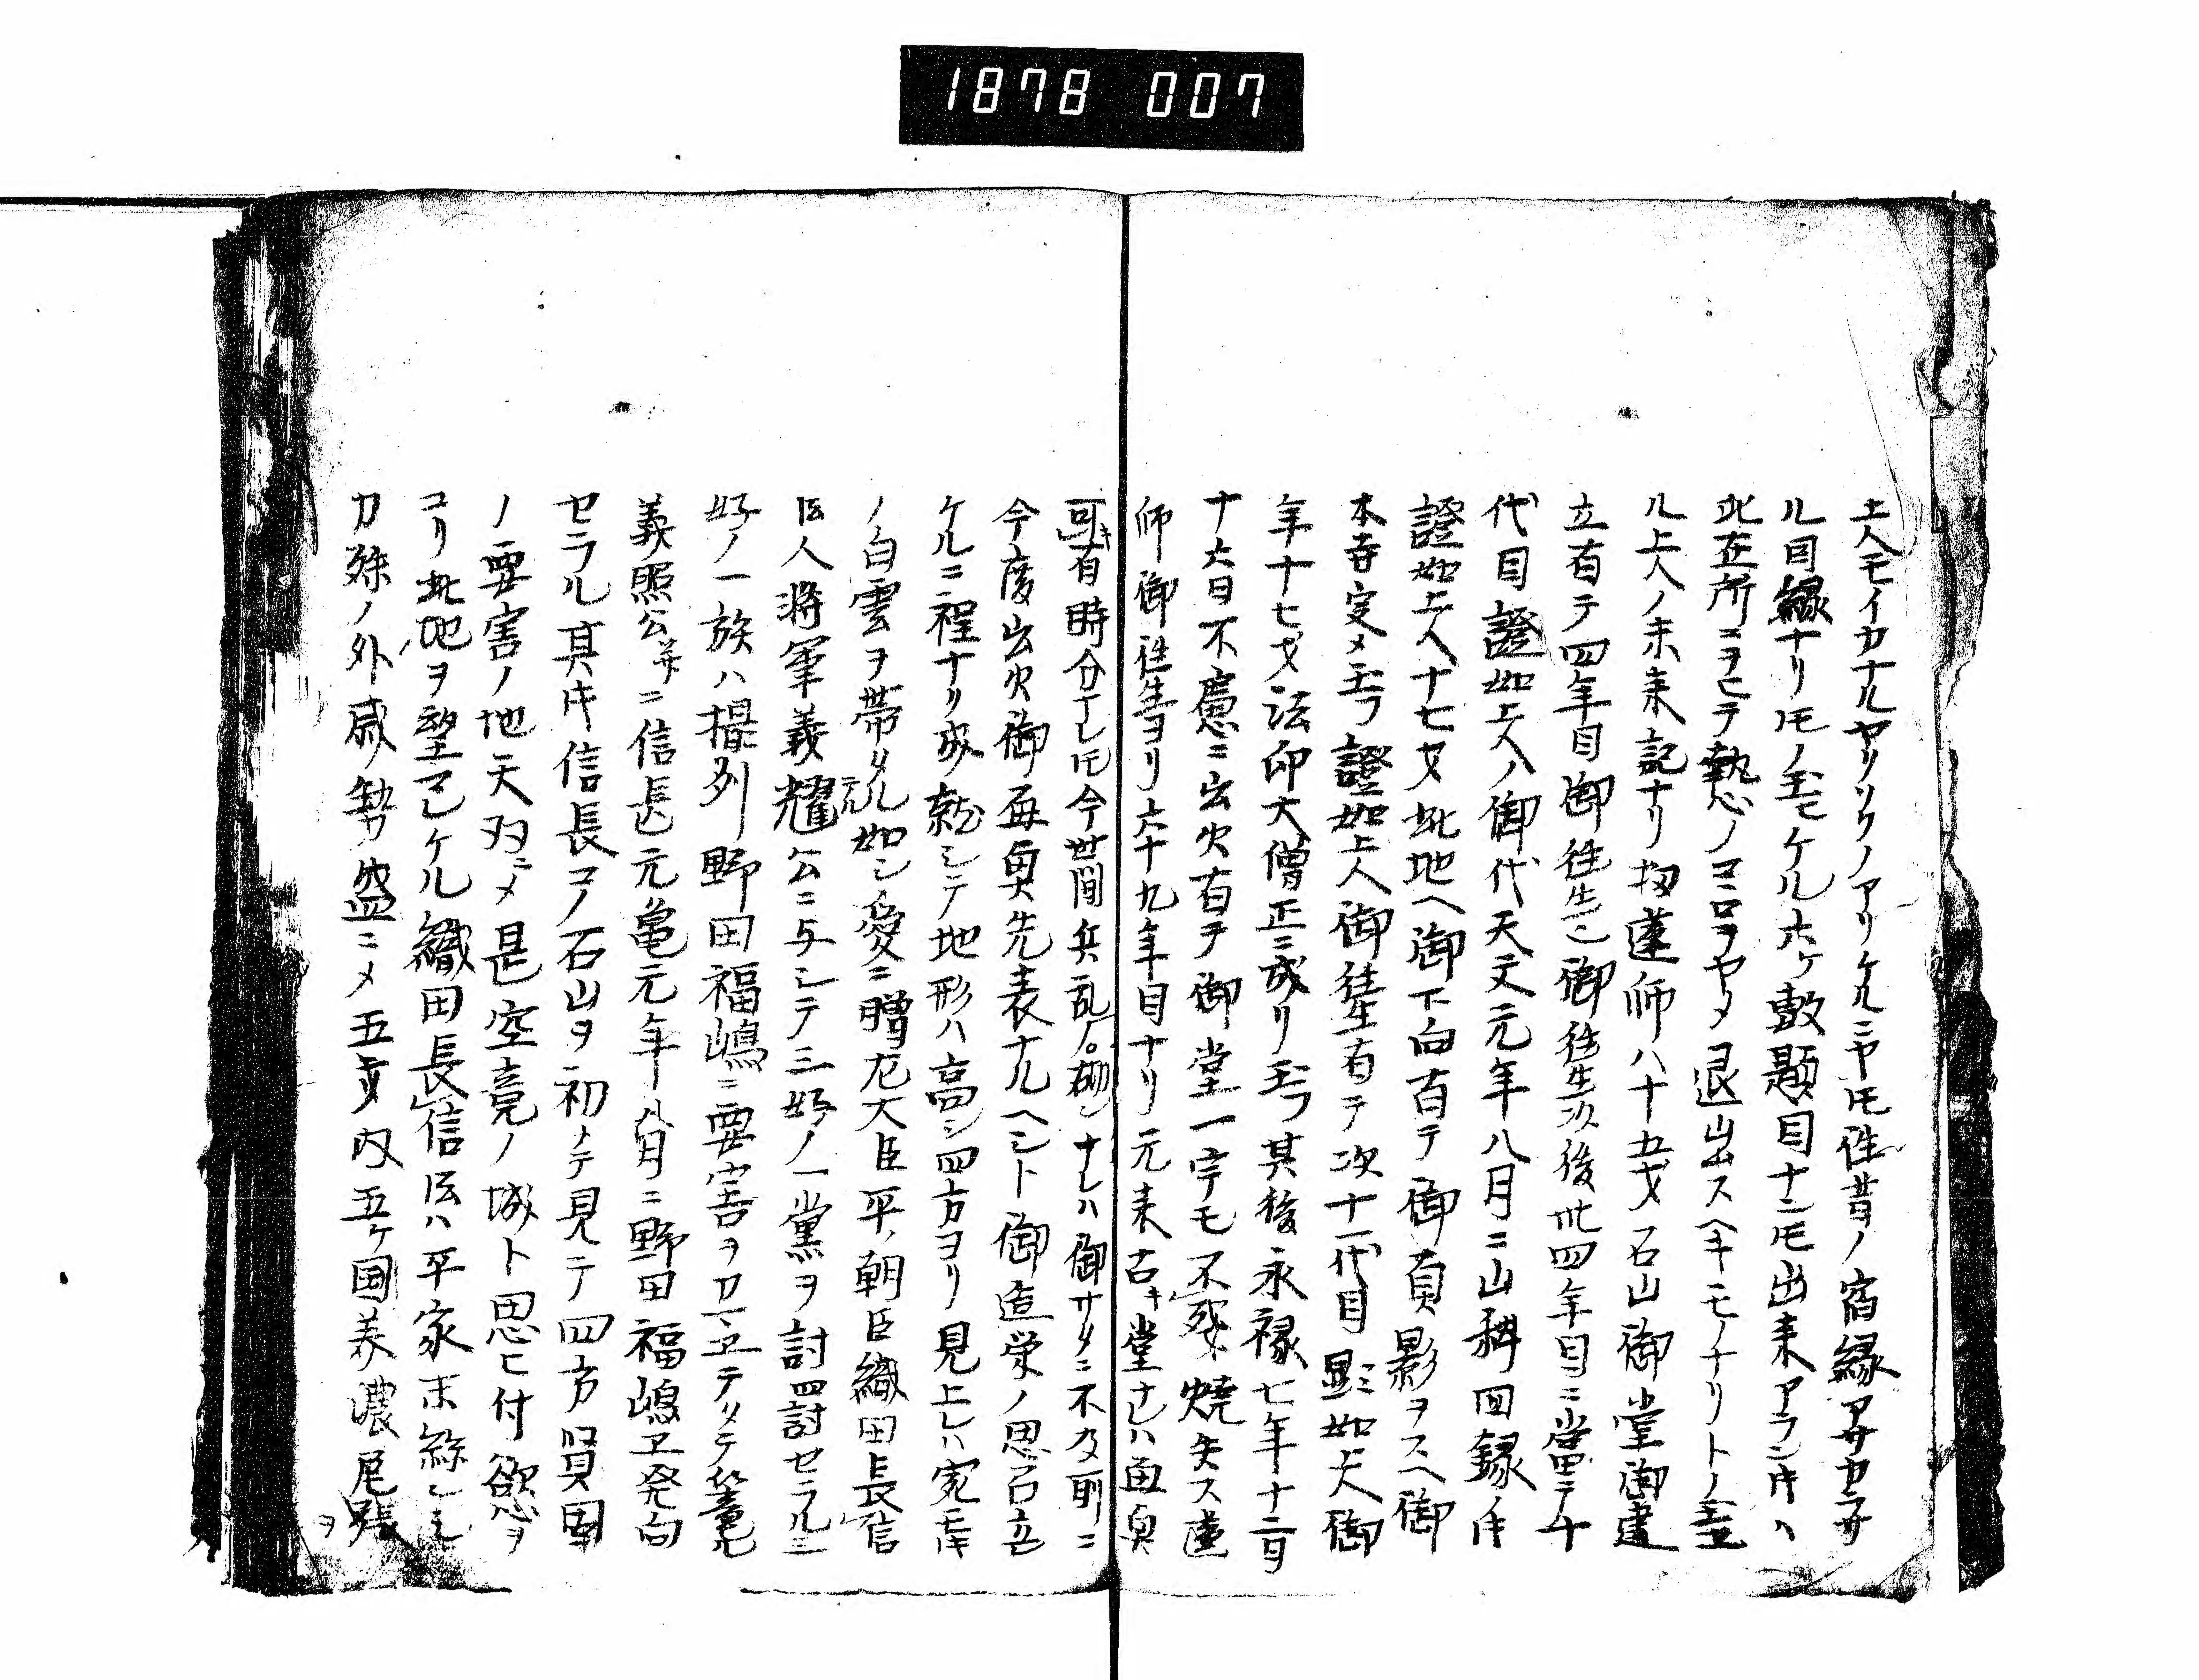 1878 007
土人モイカナルヤリソクノアリケルニヤ𪜈往昔ノ宿縁アサカラサ
ル因縁ナリ𪜈ノ玉ヒケル ホケ敷題目ナニ𪜈出来アラン片ハ
此在所ニヲヒテ執心ノココロヲヤメ退出スヘキモノナリトノ玉
ル上人ノ未来記ナリ 扨蓮師八十五才石山御堂御建
立有テ四年目御往生御往生次後卅四年目ニ當テ十
代目證如上人ノ御代天文元年八月ニ山科回録片
證如上人十七才此地ヘ御下向有テ御真影ヲスヘ御
本寺定メ玉フ證如上人御往生有テ次十一代目顕如上人御
年十七才法印大僧正ニ成リ玉フ其後永禄七年十二月
十六日不慮ニ出火有テ御堂一宇モ不残焼失ス蓮
師御往生ヨリ六十九年目ナリ元来古キ堂ナレハ再興
可キ有時分ナレ𪜈今世間兵乱ノ砌ナレハ御サタニ不及所ニ
今度出火御再興先表ナルヘシト御造栄ノ思召立
ケルニ程ナリ成就シテ地形ハ高シ四方ヨリ見上レハ宛モ
ノ白雲ヲ帯タル如シ爰ニ贈左大臣平ノ朝臣織田長信
伝人将軍義耀公ニ与シテ三好ノ一黨ヲ討罰セラルニ
好ノ一族ハ摂州野田福嶋ニ要害ヲカマヱテタテ籠ル
義照公并ニ信長元亀元年八月ニ野田福嶋エ発向
セラル其片信長コノ石山ヲ初メテ見ニテ四方賢固
ノ要害ノ地天双ニメ是空竟ノ城ト思ヒ付欲ヲ
コリ此地ヲ望マレケル織田長信伝ハ平家末絲シモ
カ殊ノ外威勢盛ニメ五畿内五ケ国美濃尾張
ヲ